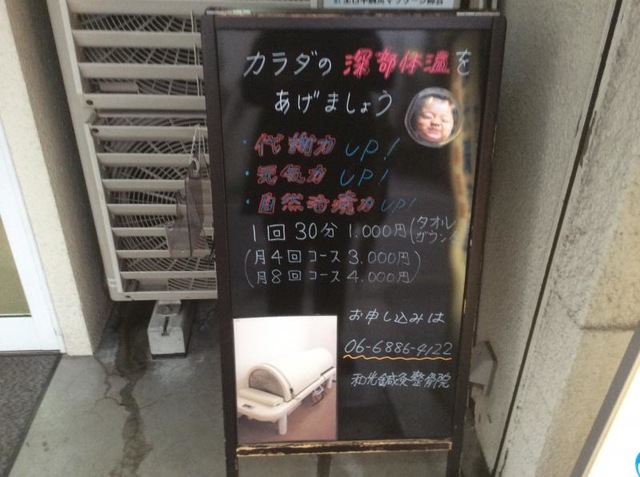 カラダの深部体温を
あげましょう
・代謝力 UP!
・元気力 UP!
・自然治癒力 UP!
1回 30分 1,000円(タオル
ガウン
(月4回コース 3,000円
月8回コース 4,000円)
お申し込みは
06-6886-4122
和光鍼灸整骨院